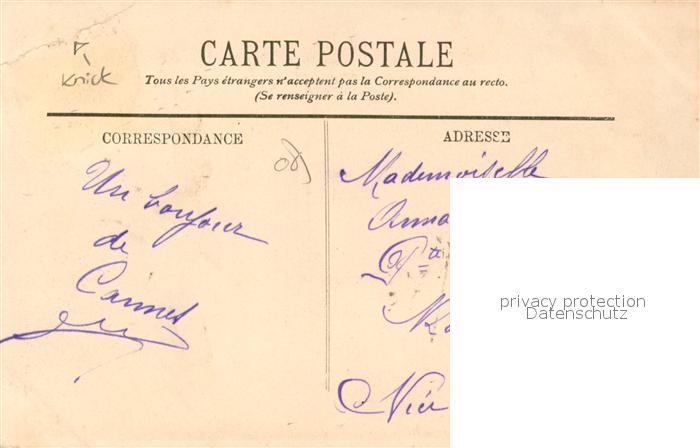 Knick
CARTE POSTALE
Tous les Pays étrangers n'acceptent pas la Correspondance au recto.
(Se renseigner à la Poste).
CORRESPONDANCE
Un bonjour
de
Cannes
ADRESSE
Mademoiselle
Anna
privacy protection
Datenschutz